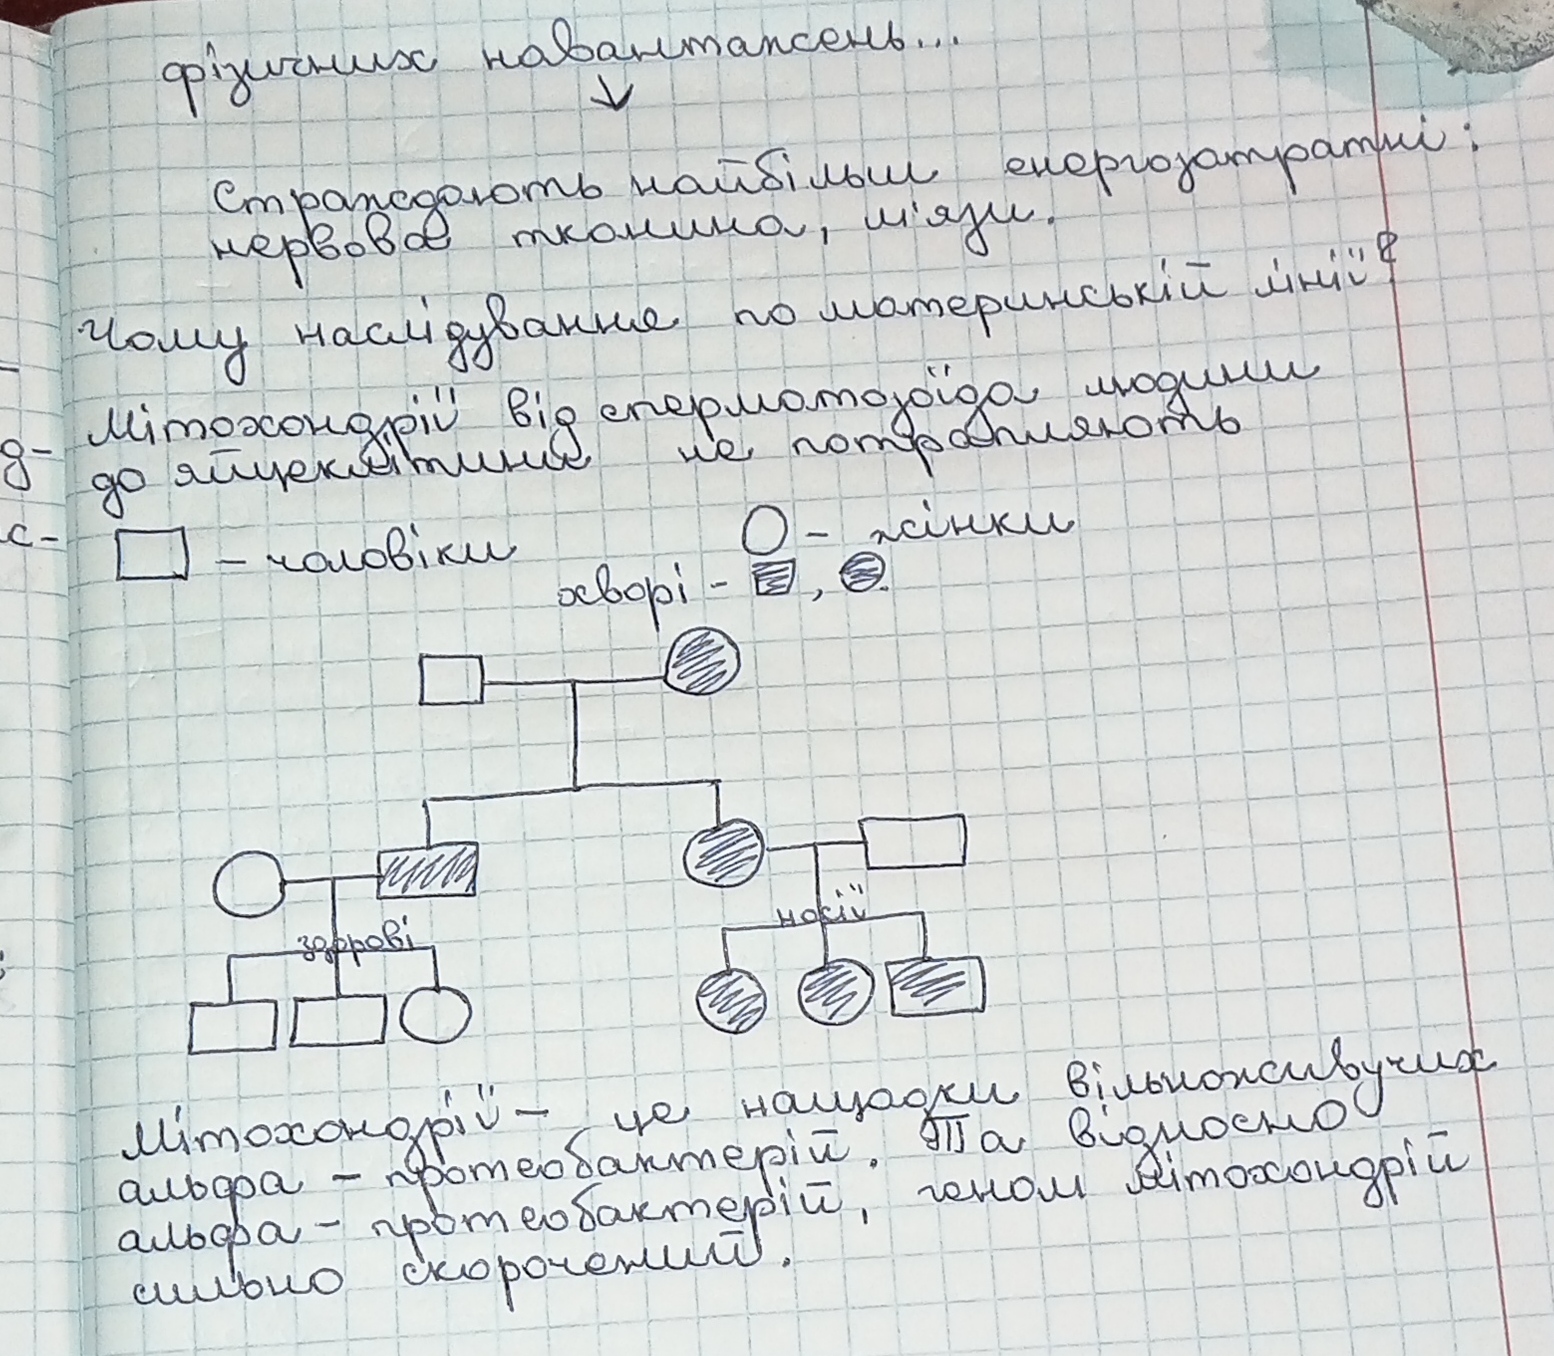 фізичних навантажень...
Страждають найбільш енергозатратні:
нервова тканина, м'язи.
Чому наслідування по материнській лінії?
Мітохондрії від сперматозоїда людини
до яйцеклітини не потрапляють
д-
с-
- чоловіки
- жінки
хворі - , .
здорові
носії
Мітохондрії - це нащадки вільноживучих
альфа - протеобактерій. Та відносно
альфа - протеобактерій, геном мітохондрій
сильно скорочений.